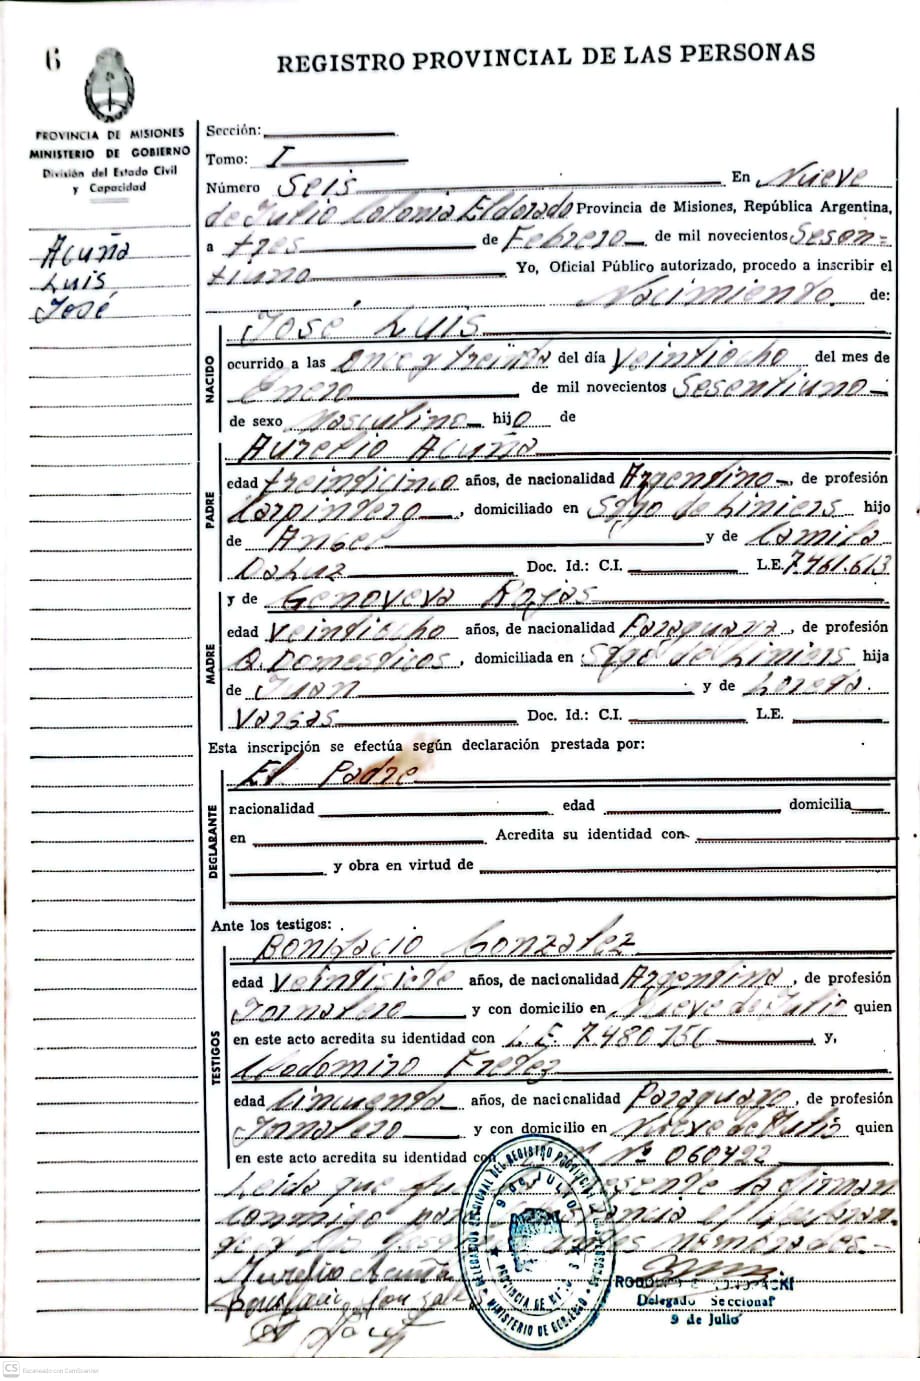 6
REGISTRO PROVINCIAL DE LAS PERSONAS
PROVINCIA DE MISIONES
MINISTERIO DE GOBIERNO
División del Estado Civil
y Capacidad
Acuña
Luis
José
Sección:
Tomo: I
Número Seis En Nueve
de Julio Colonia Eldorado Provincia de Misiones, República Argentina,
a tres de Febrero de mil novecientos Sesen-
tiuno Yo, Oficial Público autorizado, procedo a inscribir el
Nacimiento de:
NACIDO
José Luis
ocurrido a las Once y treinta del día Veintiocho del mes de
Enero de mil novecientos Sesentiuno
de sexo Masculino hijo de
PADRE
Aurelio Acuña
edad treinticinco años, de nacionalidad Argentino, de profesión
Carpintero, domiciliado en Stgo de Liniers hijo
de Angel y de Camila
DaLuz Doc. Id.: C.I. L.E. 7.461.613
MADRE
y de Genoveva Rojas
edad Veintiocho años, de nacionalidad Paraguaya, de profesión
Q. Domesticos, domiciliada en Stgo de Liniers hija
de Juan y de
Vargas Doc. Id.: C.I. L.E.
Esta inscripción se efectúa según declaración prestada por:
DECLARANTE
El Padre
nacionalidad edad domicilia
en Acredita su identidad con
y obra en virtud de
Ante los testigos:
TESTIGOS
Bonifacio Gonzalez
edad Veintisiete años, de nacionalidad Argentina, de profesión
Jornalero y con domicilio en Nueve de Julio quien
en este acto acredita su identidad con L.E. 7480756 y,
Clodomiro
edad Cincuenta años, de nacionalidad Paraguayo, de profesión
Jornalero y con domicilio en Nueve de Julio quien
en este acto acredita su identidad con Nº 060422
Leida que la firman
conmigo el declaran-
te y los nombrados.-
Aurelio Acuña
Bonifacio Gonzalez
Delegado Seccional
9 de Julio
DELEGACION SECCIONAL DEL REGISTRO PROVINCIAL DE LAS PERSONAS
9 DE JULIO
PROVINCIA DE MISIONES
MINISTERIO DE GOBIERNO
CS Escaneado con CamScanner